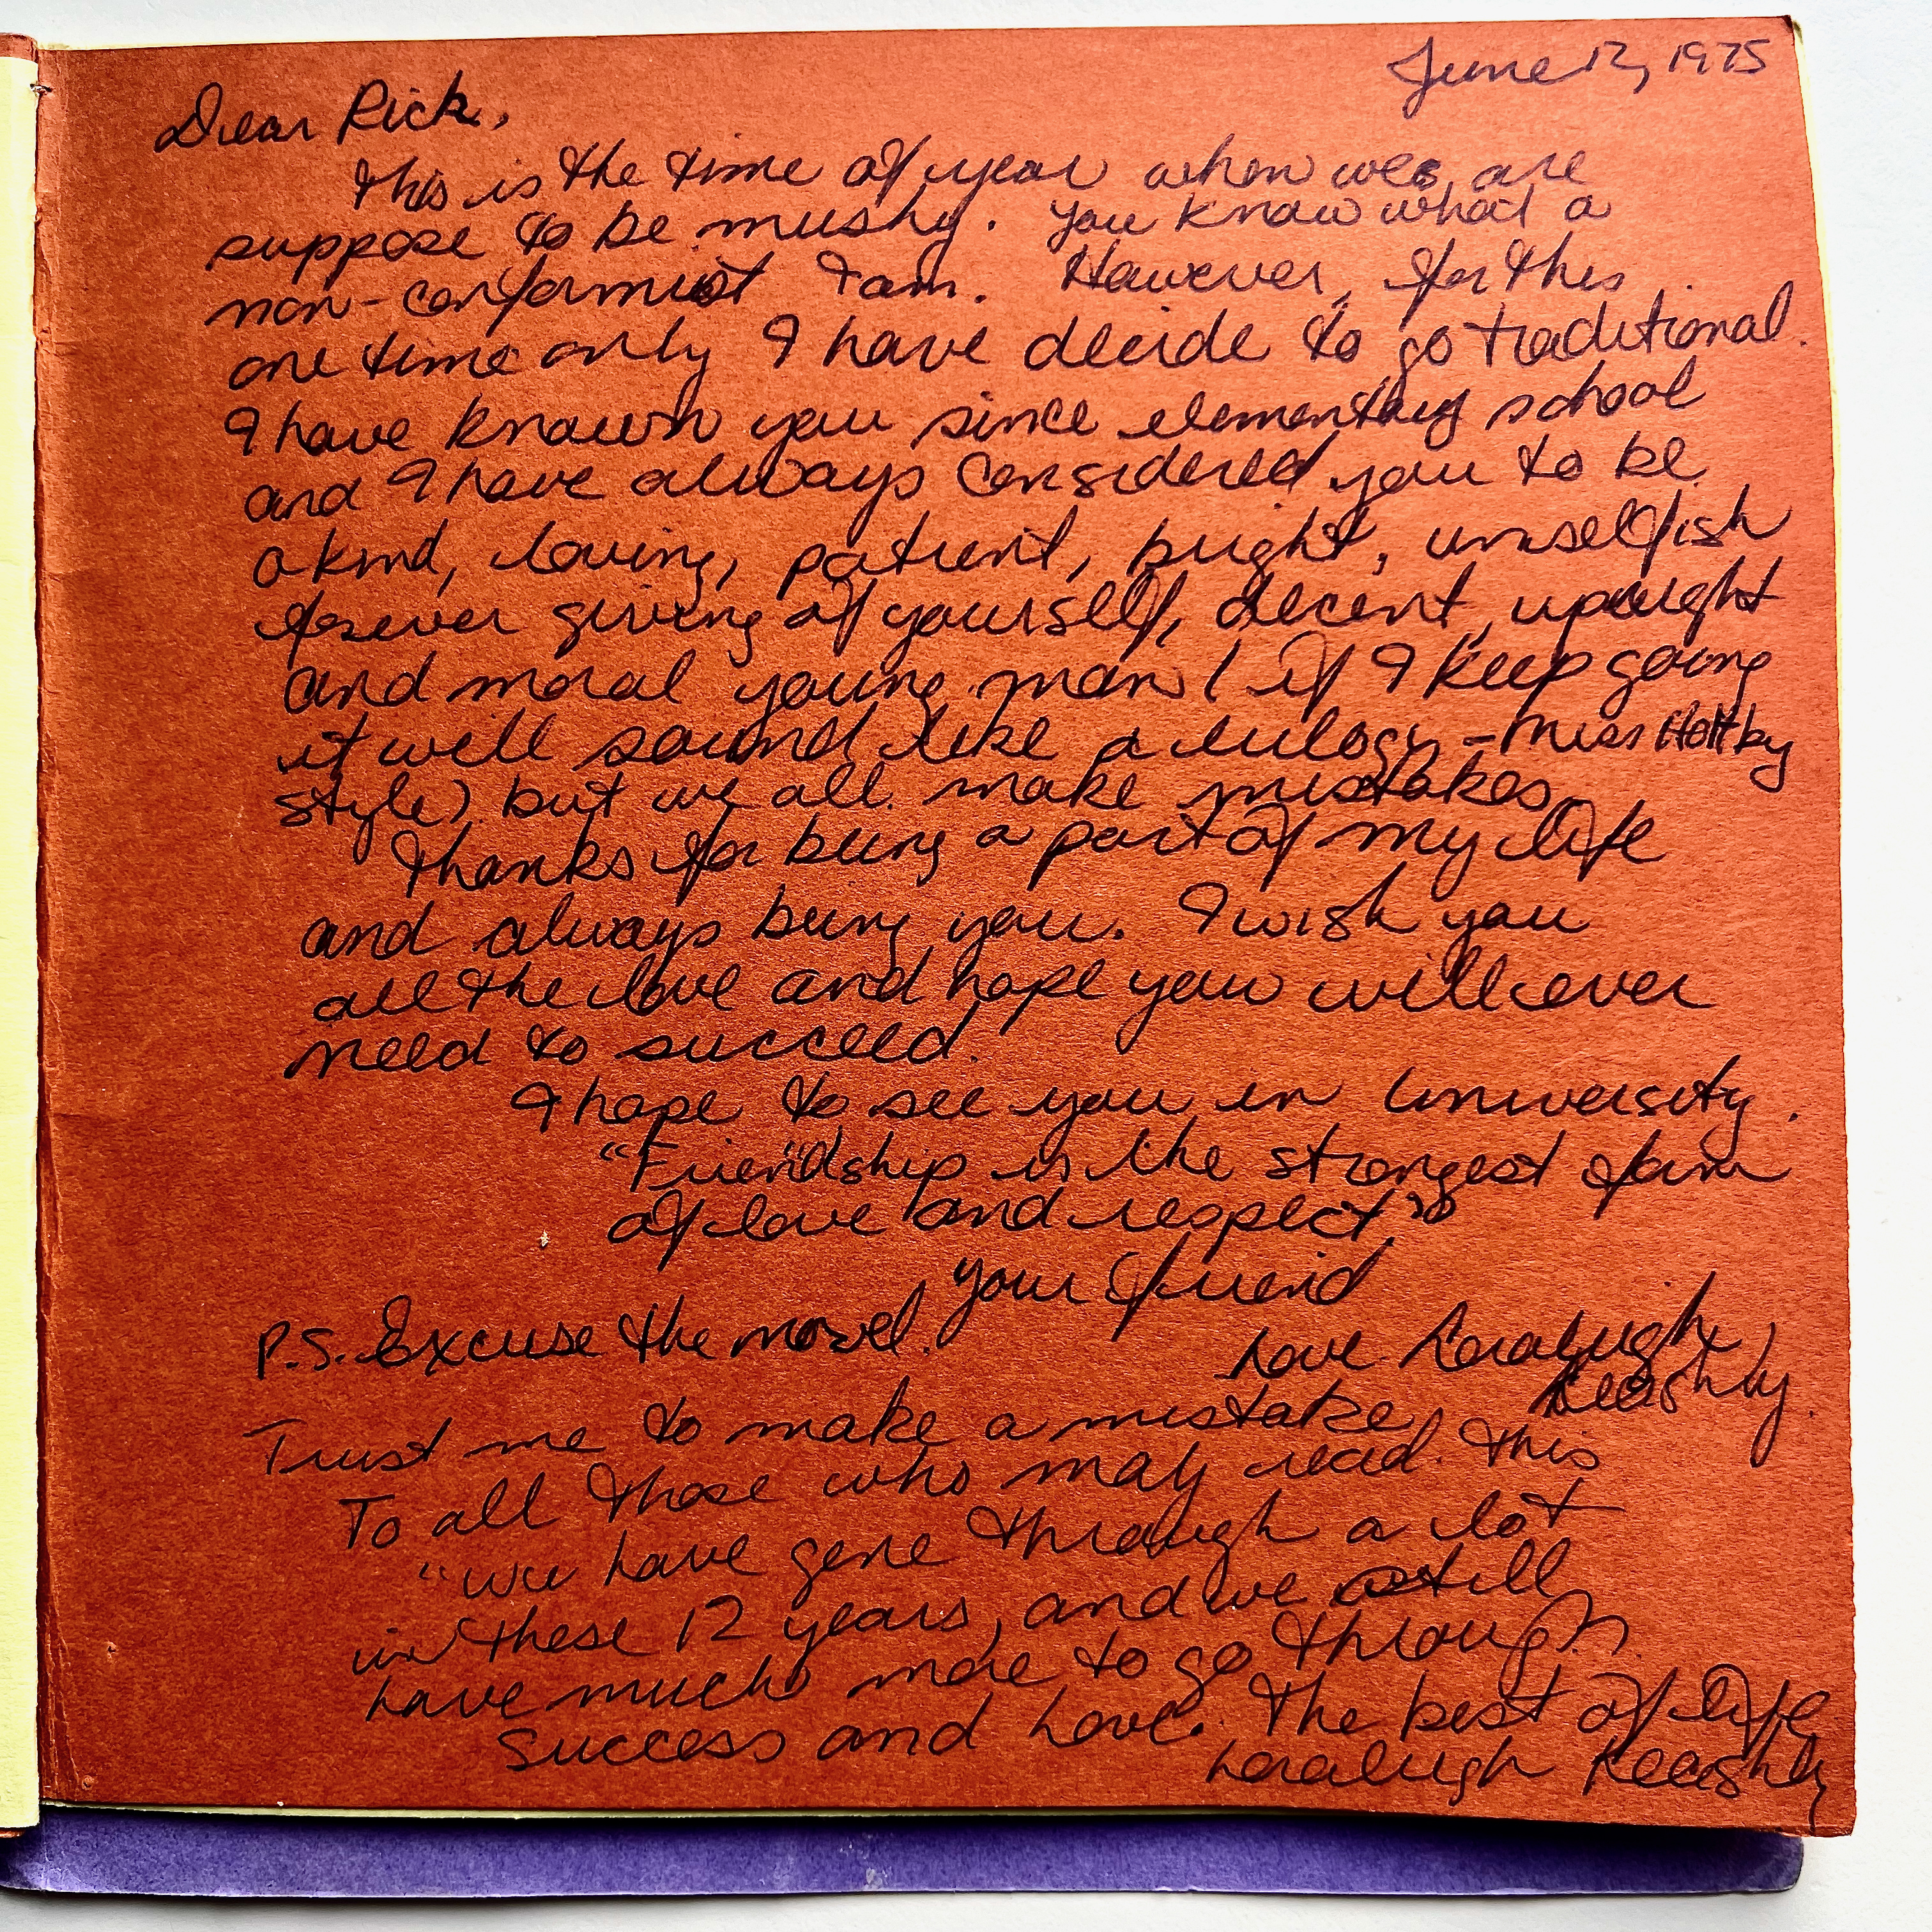 June 12, 1975
Dear Rick,
This is the time of year when we are
suppose to be mushy. You know what a
non-conformist I am. However, for this
one time only I have decide to go traditional.
I have known you since elementary school
and I have always considered you to be
a kind, loving, patient, bright, unselfish
forever giving of yourself, decent, upright
and moral young man (if I keep going
it will sound like a eulogy - Miss Holtby
style) but we all make mistakes.
Thanks for being a part of my life
and always being you. I wish you
all the love and hope you will ever
need to succeed.
I hope to see you in University.
"Friendship is the strongest form
of love and respect"
Your friend
P.S. Excuse the novel.
Love Loraleigh
Keashly.
Trust me to make a mistake
To all those who may read this
"We have gone through a lot
in these 12 years, and we still
have much more to go through.
Success and Love. The best of life
Loraleigh Keashly